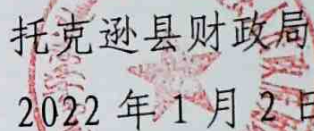 托克逊县财政局
2022年1月2日